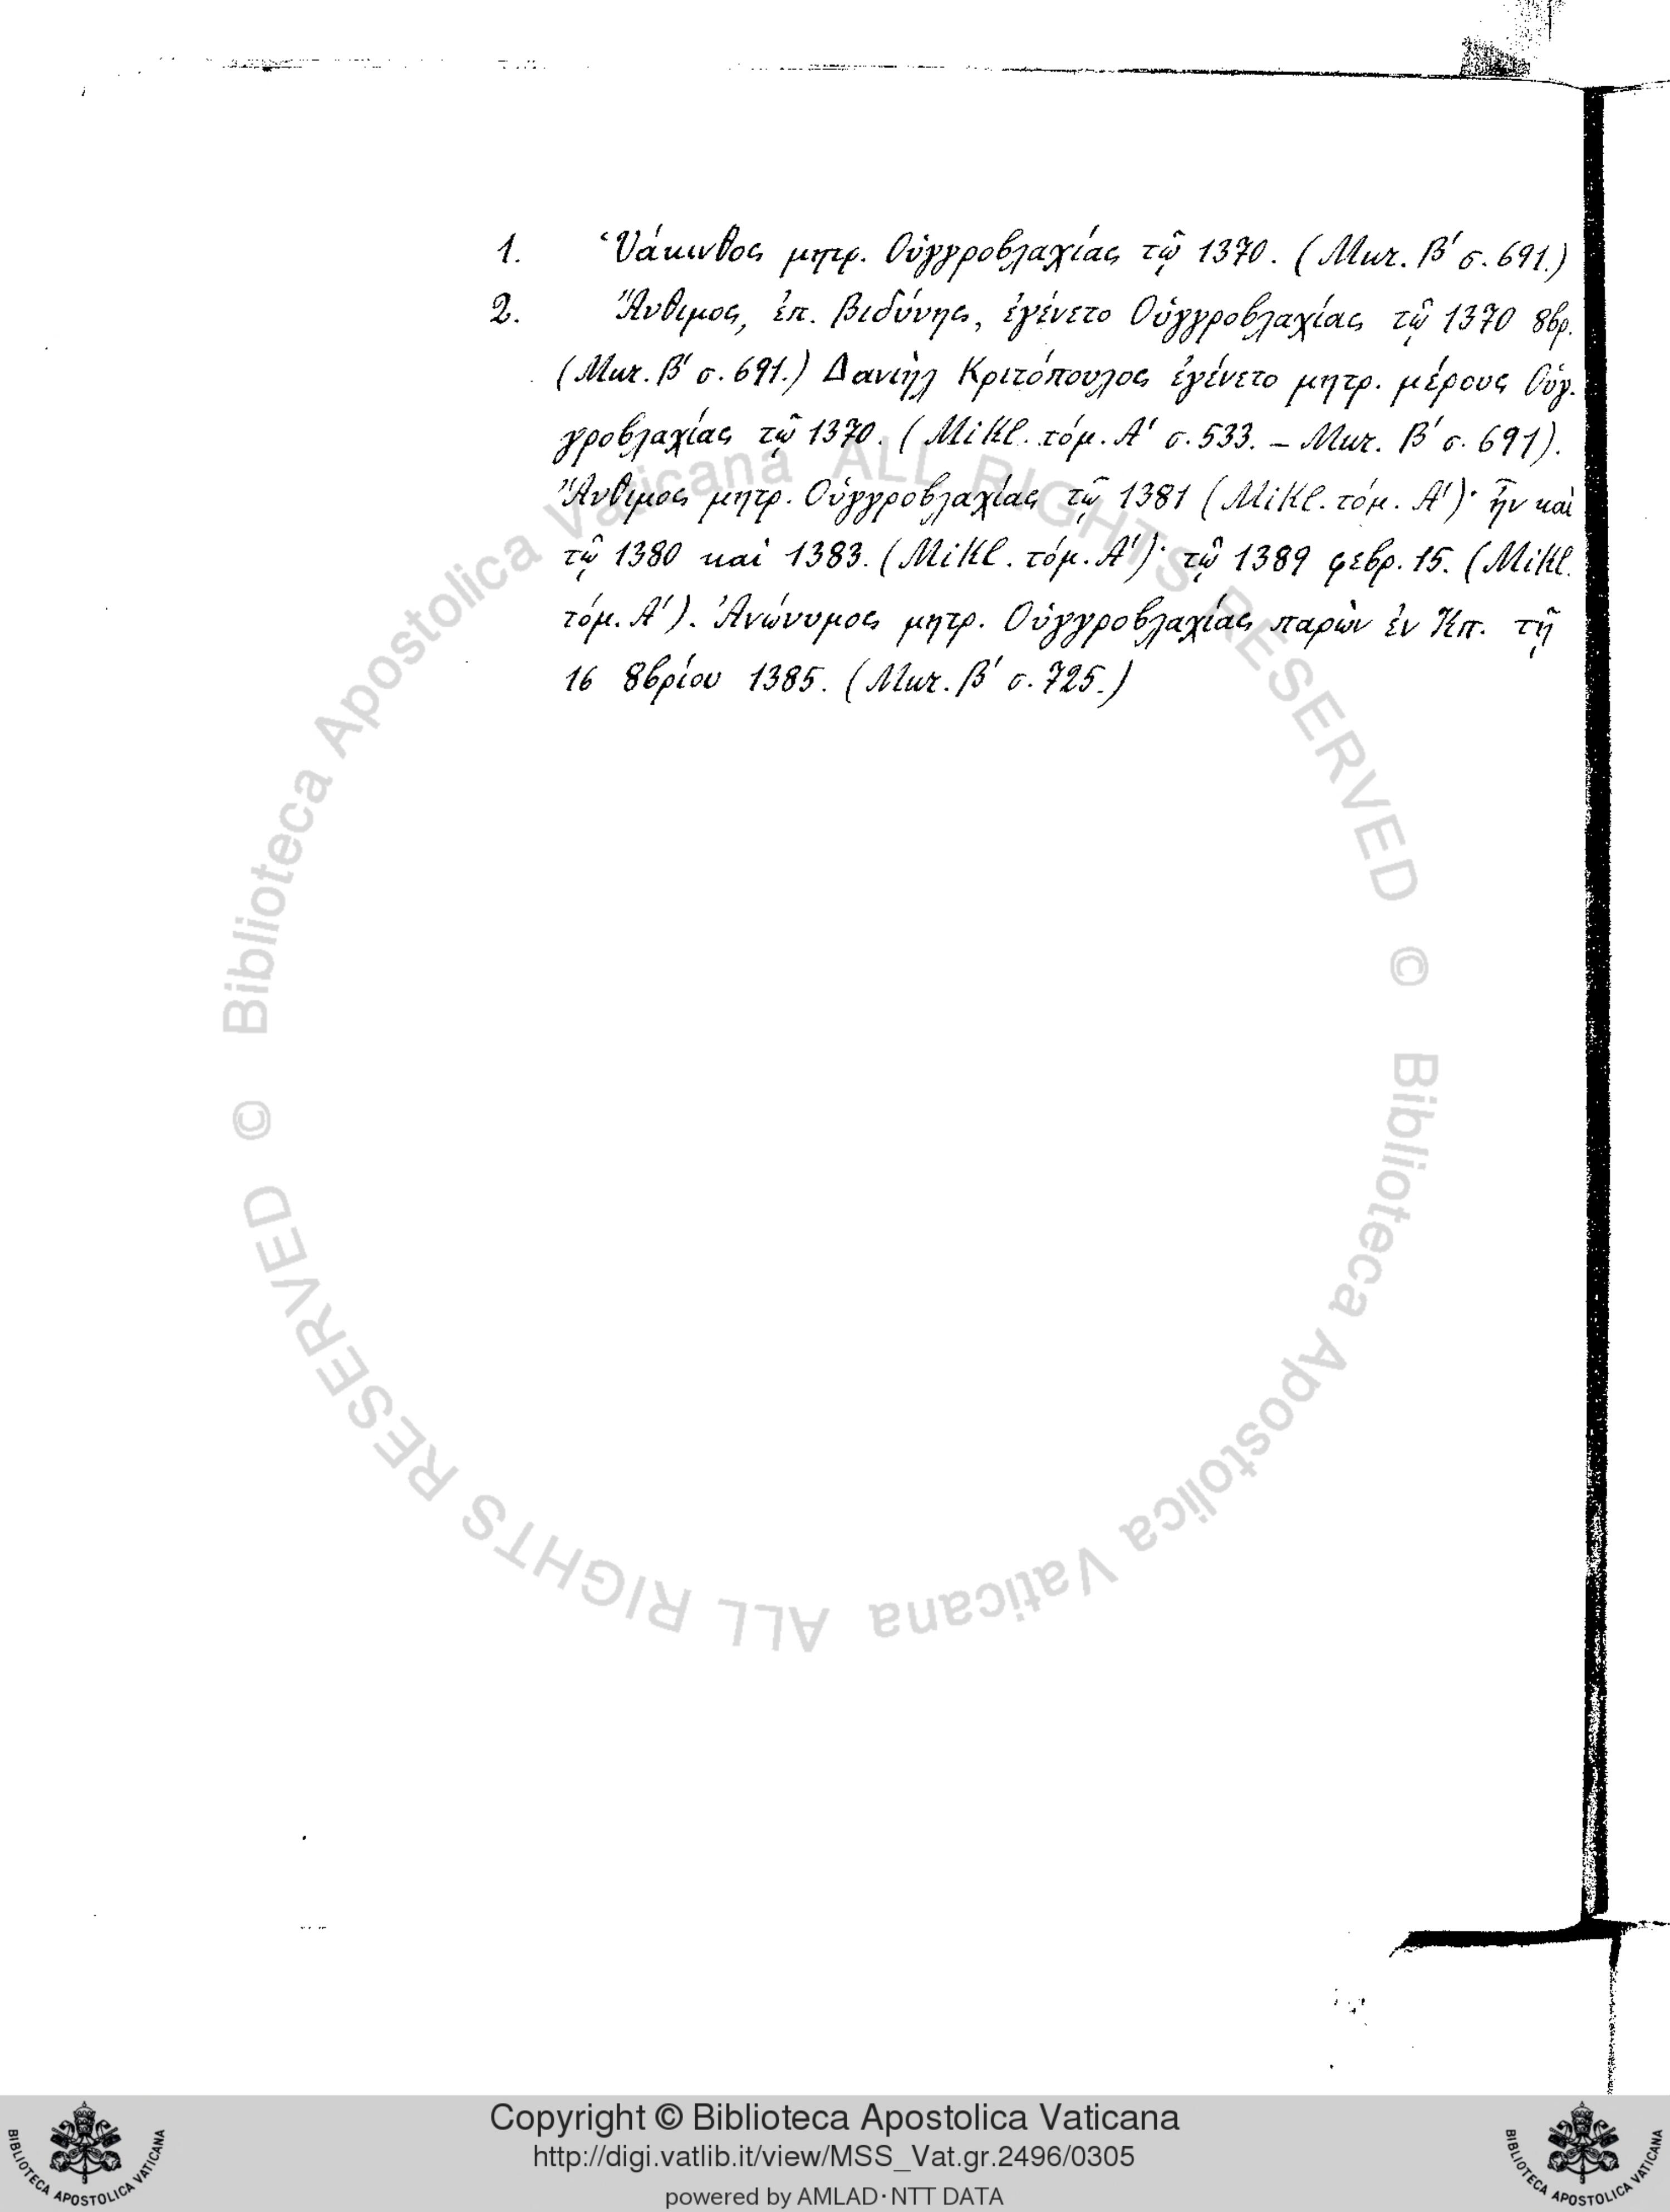 1. Ὑάκινθος μητρ. Οὐγγροβλαχίας τῷ 1370. (Μικ. Β' σ. 691.)
2. Ἄνθιμος, ἐπ. Βιδύνης, ἐγένετο Οὐγγροβλαχίας τῷ 1370 8βρ.
(Μικ. Β' σ. 691.) Δανιὴλ Κριτόπουλος ἐγένετο μητρ. μέρους Οὐγ-
γροβλαχίας τῷ 1370. (Mikl. τόμ. Α' σ. 533. – Μικ. Β' σ. 691).
Ἄνθιμος μητρ. Οὐγγροβλαχίας τῷ 1381 (Mikl. τόμ. Α')· ἦν καὶ
τῷ 1380 καὶ 1383. (Mikl. τόμ. Α')· τῷ 1389 φεβρ. 15. (Mikl.
τόμ. Α'). Ἀνώνυμος μητρ. Οὐγγροβλαχίας παρὼν ἐν Κπ. τῇ
16 8βρίου 1385. (Μικ. Β' σ. 725.)
© Biblioteca Apostolica Vaticana ALL RIGHTS RESERVED
© Biblioteca Apostolica Vaticana ALL RIGHTS RESERVED
Copyright © Biblioteca Apostolica Vaticana
http://digi.vatlib.it/view/MSS_Vat.gr.2496/0305
powered by AMLAD·NTT DATA
BIBLIOTECA APOSTOLICA VATICANA
BIBLIOTECA APOSTOLICA VATICANA